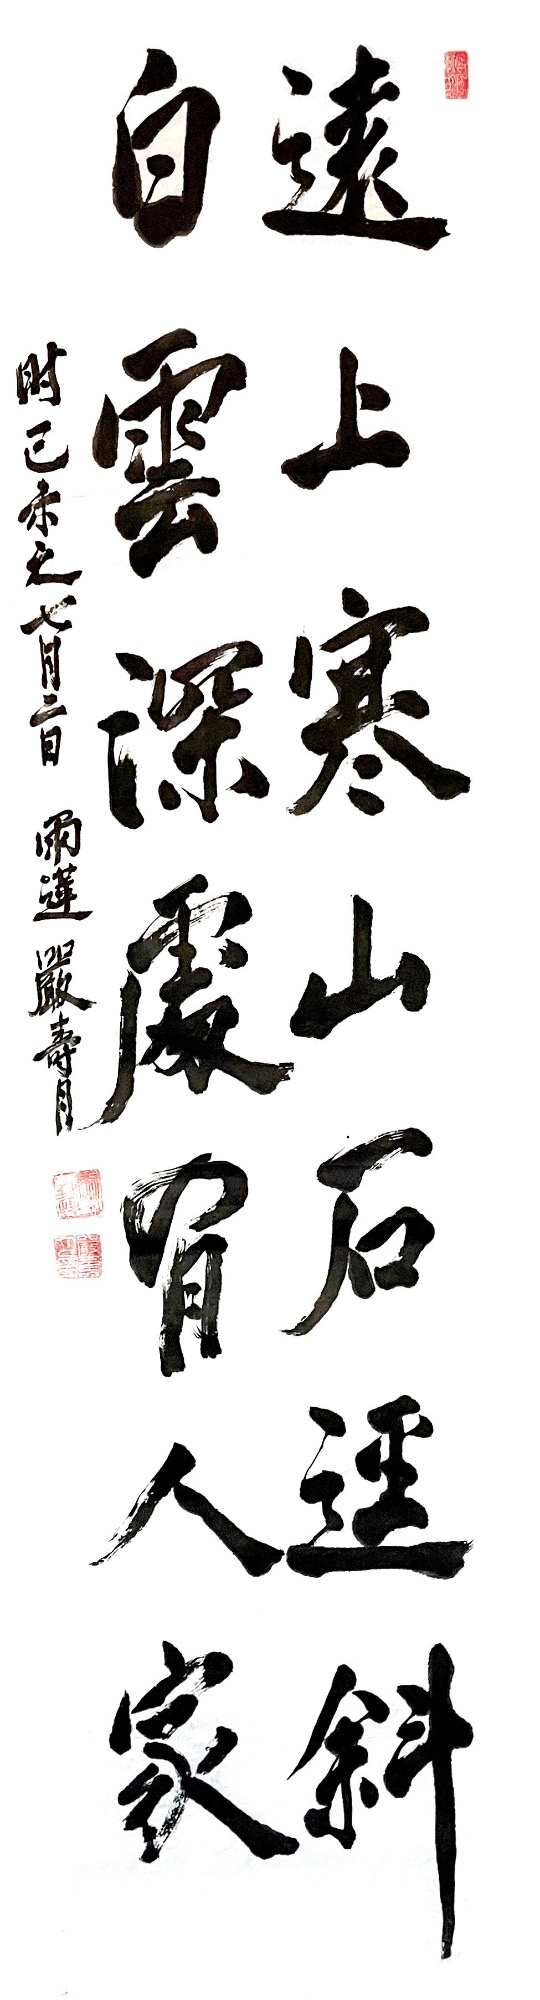 遠上寒山石逕斜
白雲深處有人家
時己未之七月二日 雨蓮 嚴壽月